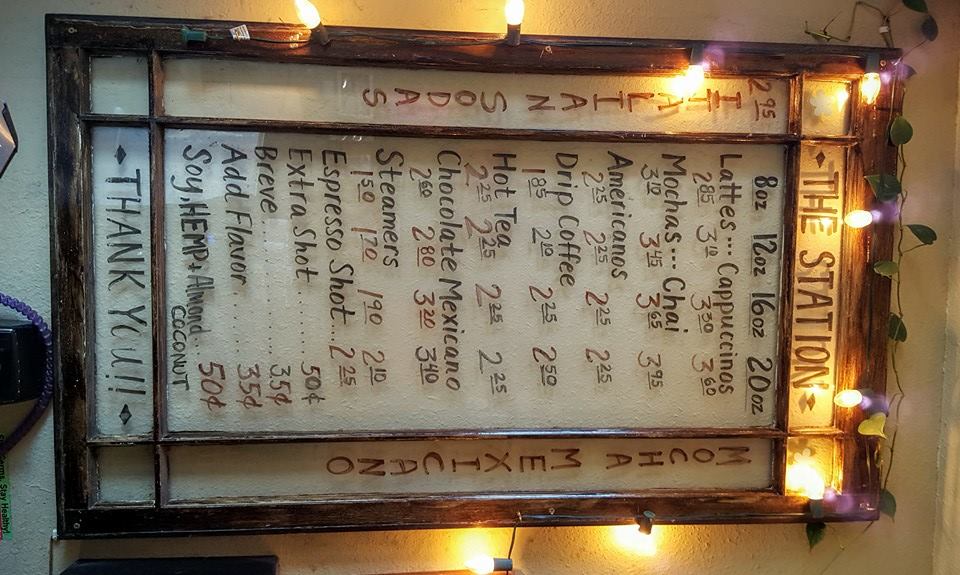 THE STATION
2.95
ITALIAN SODAS
8oz 12oz 16oz 20oz
Lattes... Cappuccinos
2.85 3.10 3.30 3.60
Mochas... Chai
3.10 3.45 3.65 3.95
Americanos
2.25 2.25 2.25 2.25
Drip Coffee
1.85 2.10 2.25 2.50
Hot Tea
2.25 2.25 2.25 2.25
Chocolate Mexicano
2.60 2.80 3.20 3.40
Steamers
1.50 1.70 1.90 2.10
Espresso Shot... 2.25
Extra Shot........ 50¢
Breve............ 35¢
Add Flavor........ 35¢
Soy, HEMP + Almond 50¢
COCONUT
MOCHA MEXICANO
THANK YOU!!
Stay Healthy!